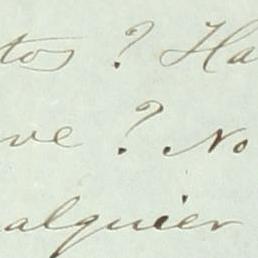 tos ? Ha
ve ? No
alquier